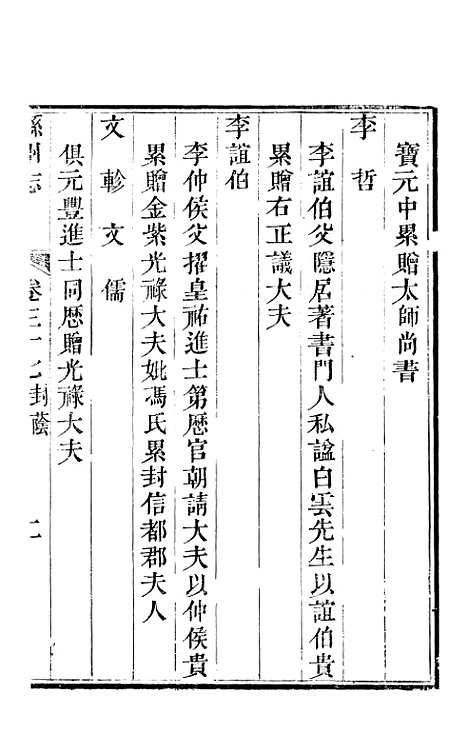 寶元中累贈太師尚書
李哲
李誼伯父隱居著書門人私諡白雲先生以誼伯貴
累贈右正議大夫
李誼伯
李仲侯父擢皇祐進士第歷官朝請大夫以仲侯貴
累贈金紫光祿大夫妣馮氏累封信都郡夫人
文軫 文儒
俱元豐進士同歷贈光祿大夫
州志 卷三十七封蔭 二